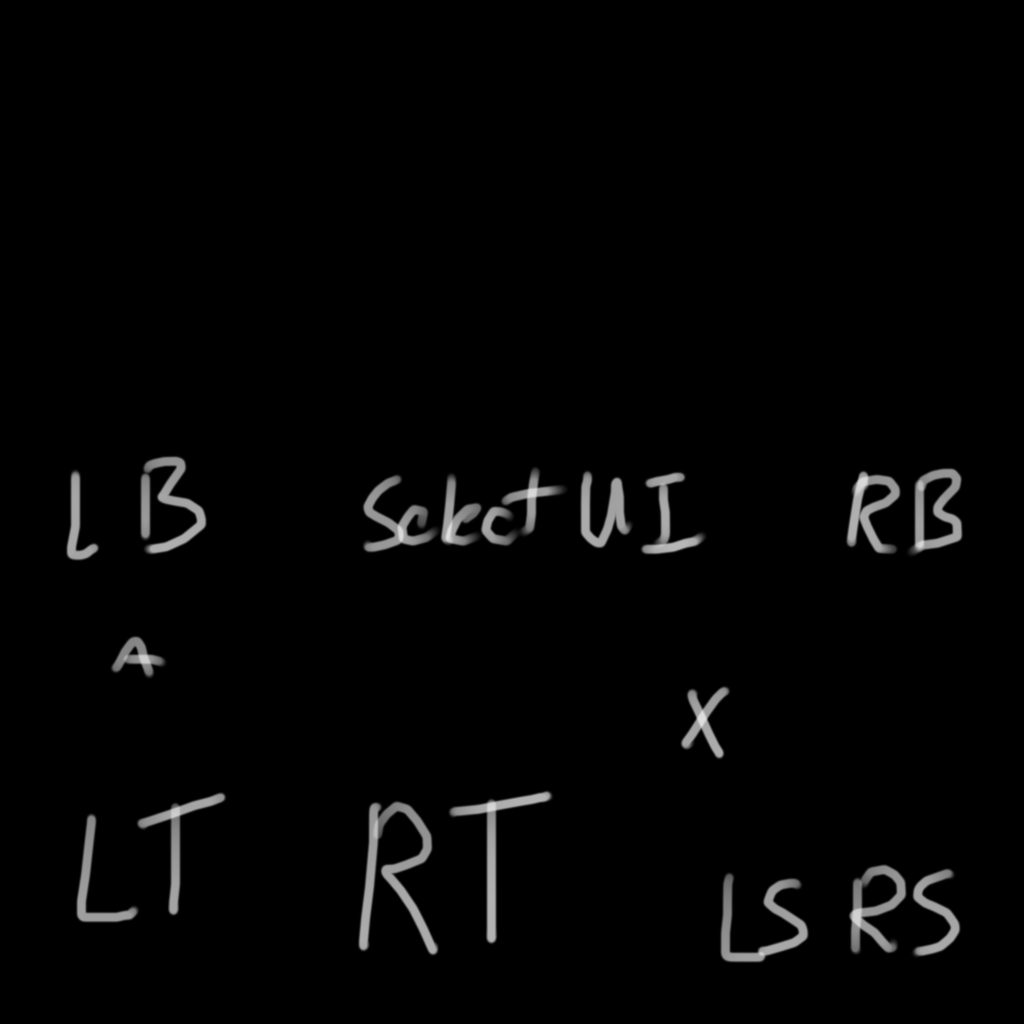 LB Select UI RB
A
X
LT RT
LS RS